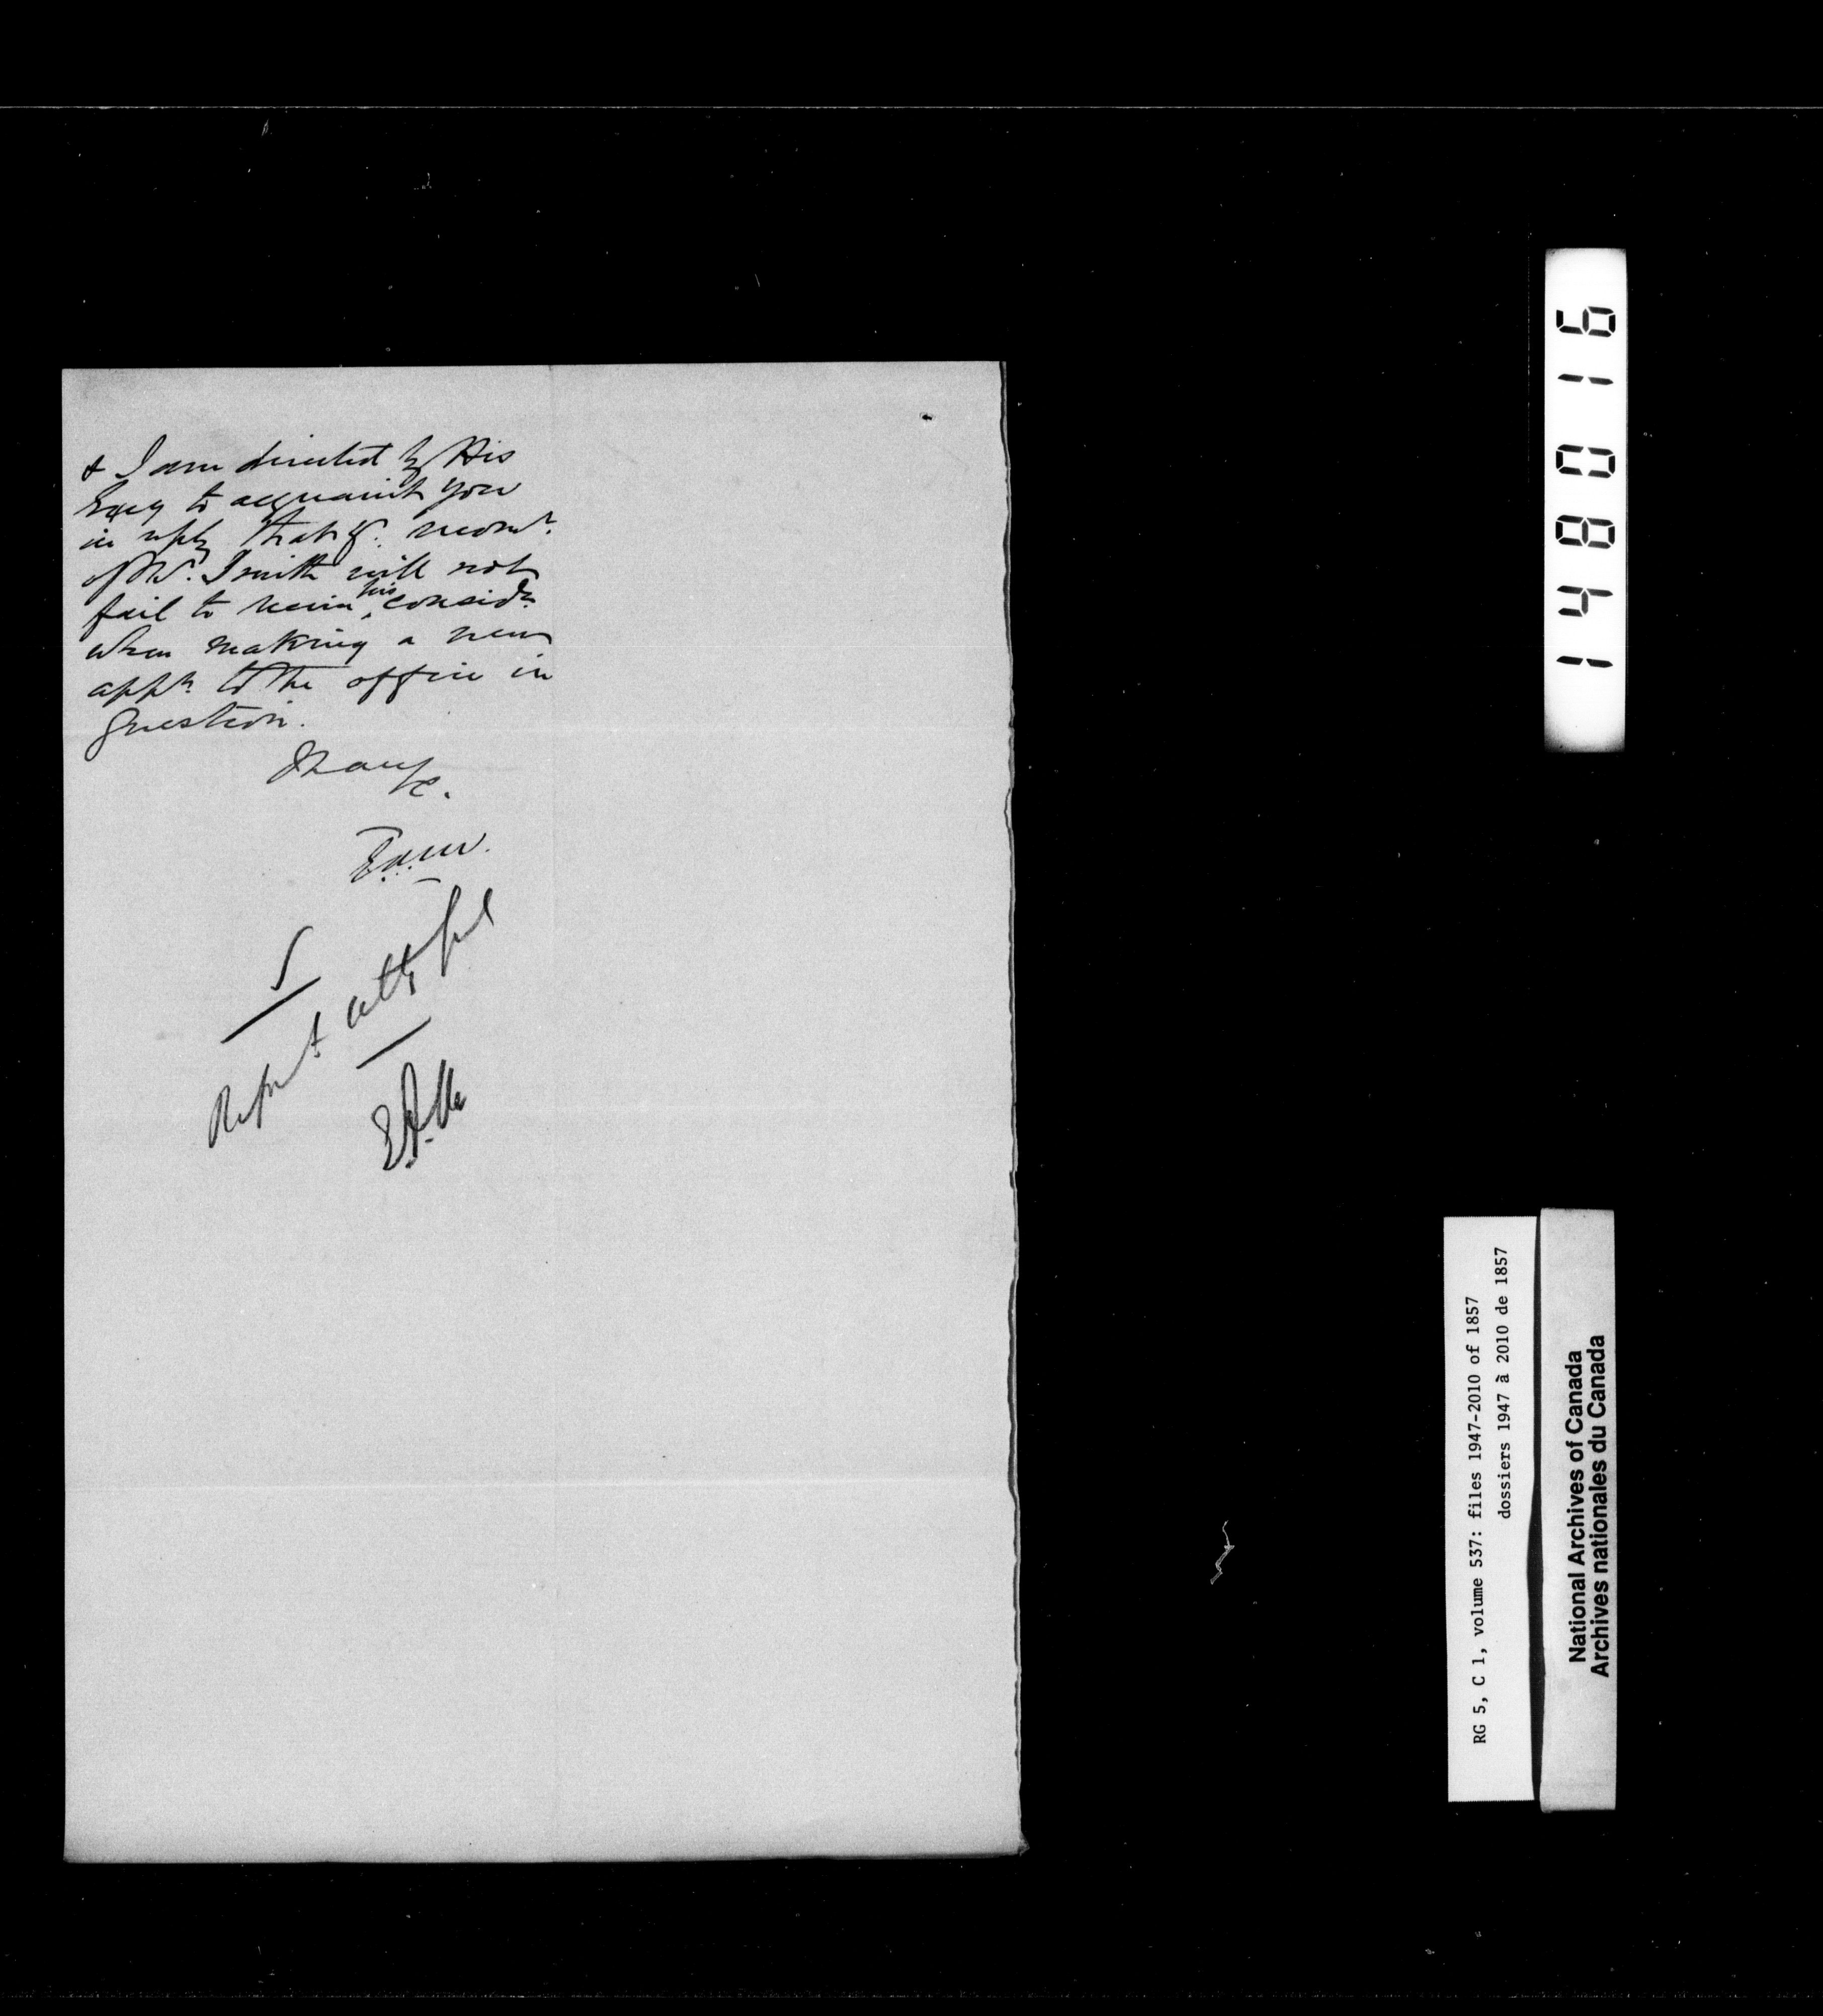 & I am directed by His
Excy to acquaint you
in reply that yr. recomn.
of Mr. Smith will not
fail to receive his considn.
when making a new
appt. to the office in
question.
I have
&c.
E.A.M.
Report
E.A.M.
148016
RG 5, C 1, volume 537: files 1947-2010 of 1857
dossiers 1947 à 2010 de 1857
National Archives of Canada
Archives nationales du Canada